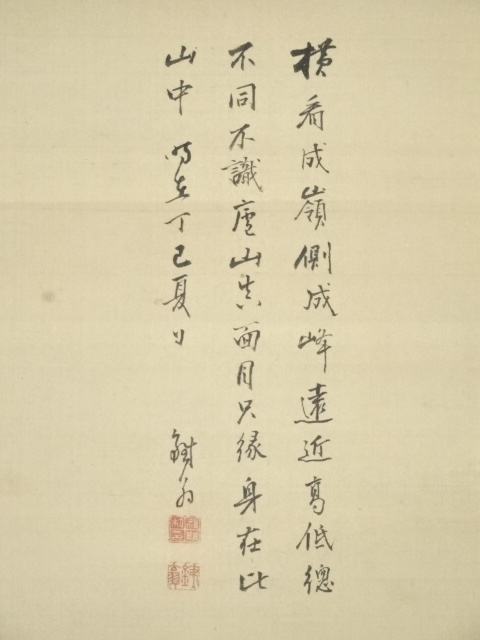 横看成嶺側成峰遠近高低總
不同不識廬山真面目只緣身在此
山中 時在丁巳夏日 鐵翁